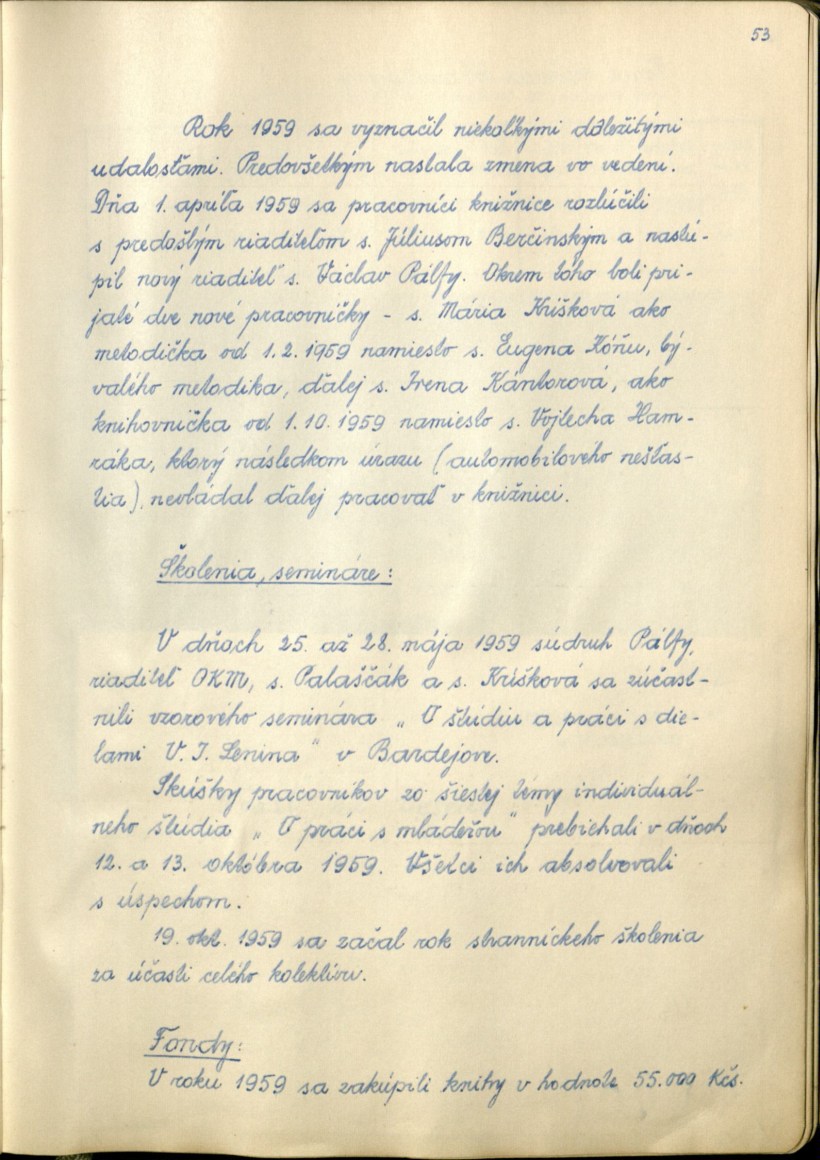 53
Rok 1959 sa vyznačil niekoľkými dôležitými
udalosťami. Predovšetkým nastala zmena vo vedení.
Dňa 1. apríľa 1959 sa pracovníci knižnice rozlúčili
s predošlým riaditeľom s. Júliusom Berčinským a nastú-
pil nový riaditeľ s. Václav Pálfy. Okrem toho boli pri-
jaté dve nové pracovníčky - s. Mária Krišková ako
metodička od 1.2.1959 namiesto s. Eugena Kóňu, bý-
valého metodika, ďalej s. Irena Kántorová, ako
knihovníčka od 1.10.1959 namiesto s. Vojtecha Ham-
ráka, ktorý následkom úrazu (automobilového nešťas-
tia), nevládal ďalej pracovať v knižnici.
Školenia, semináre:
V dňoch 25. až 28. mája 1959 súdruh Pálfy,
riaditeľ OKM, s. Palaščák a s. Krišková sa zúčast-
nili vzorového seminára „O štúdiu a práci s die-
lami V. I. Lenina" v Bardejove.
Skúšky pracovníkov zo šiestej témy individuál-
neho štúdia „O práci s mládežou" prebiehali v dňoch
12. a 13. októbra 1959. Všetci ich absolvovali
s úspechom.
19. okt. 1959 sa začal rok stranníckeho školenia
za účasti celého kolektívu.
Fondy:
V roku 1959 sa zakúpili knihy v hodnote 55.000 Kčs.